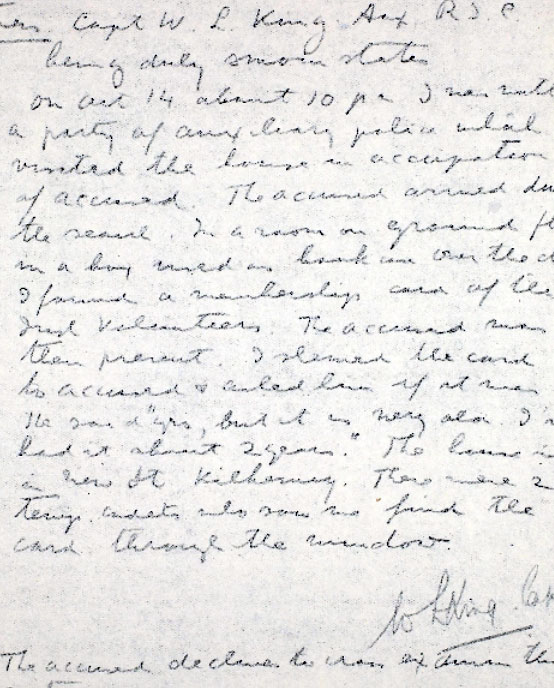 Capt W. L. King Aux R.I.C
being duly sworn states
on Oct 14 about 10 pm I was with
a party of auxiliary police which
visited the house in occupation
of accused. The accused arrived du
the search. In a room on ground fl
in a box used as book case over the d
I found a membership card of the
Irish Volunteers. The accused was
then present. I showed the card
to accused & asked him if it was
He said "yes, but it is very old. I'v
had it about 2 years." The house is
in New St Kilkenny. There were 2
temp. cadets who saw me find the
card through the window.
W L King Capt
The accused declines to cross examine this